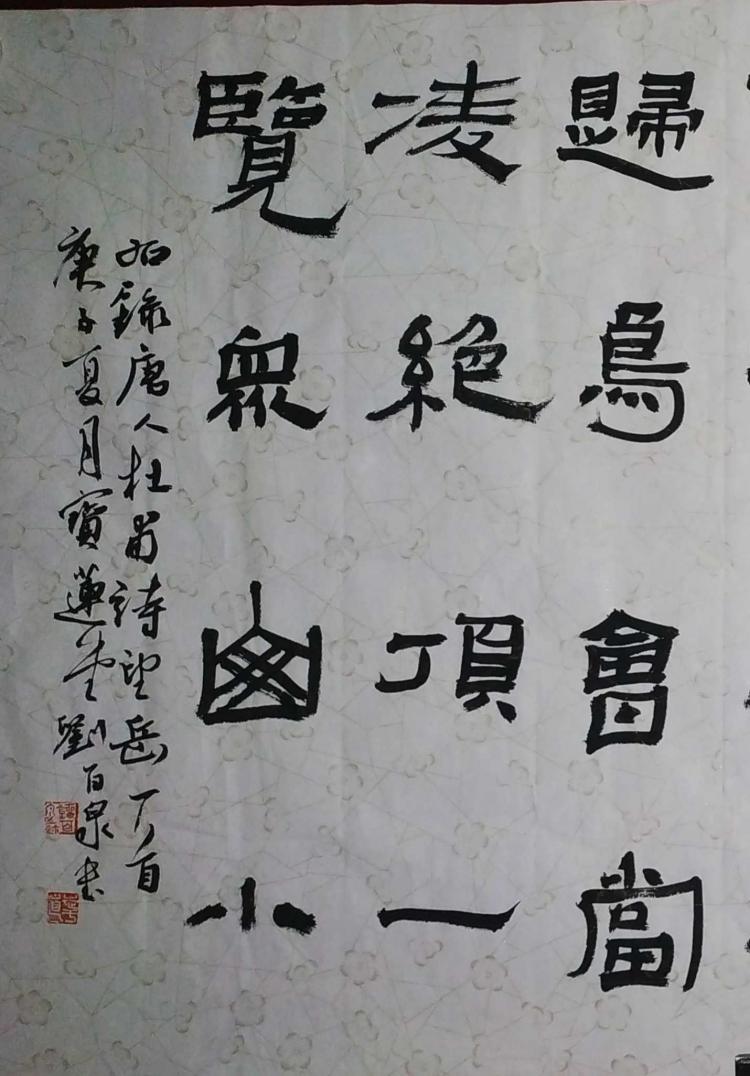 歸鳥會當
凌絕頂一
覽眾山小
右錄唐人杜甫詩望岳一首
庚子夏月寶蓮堂劉百泉書